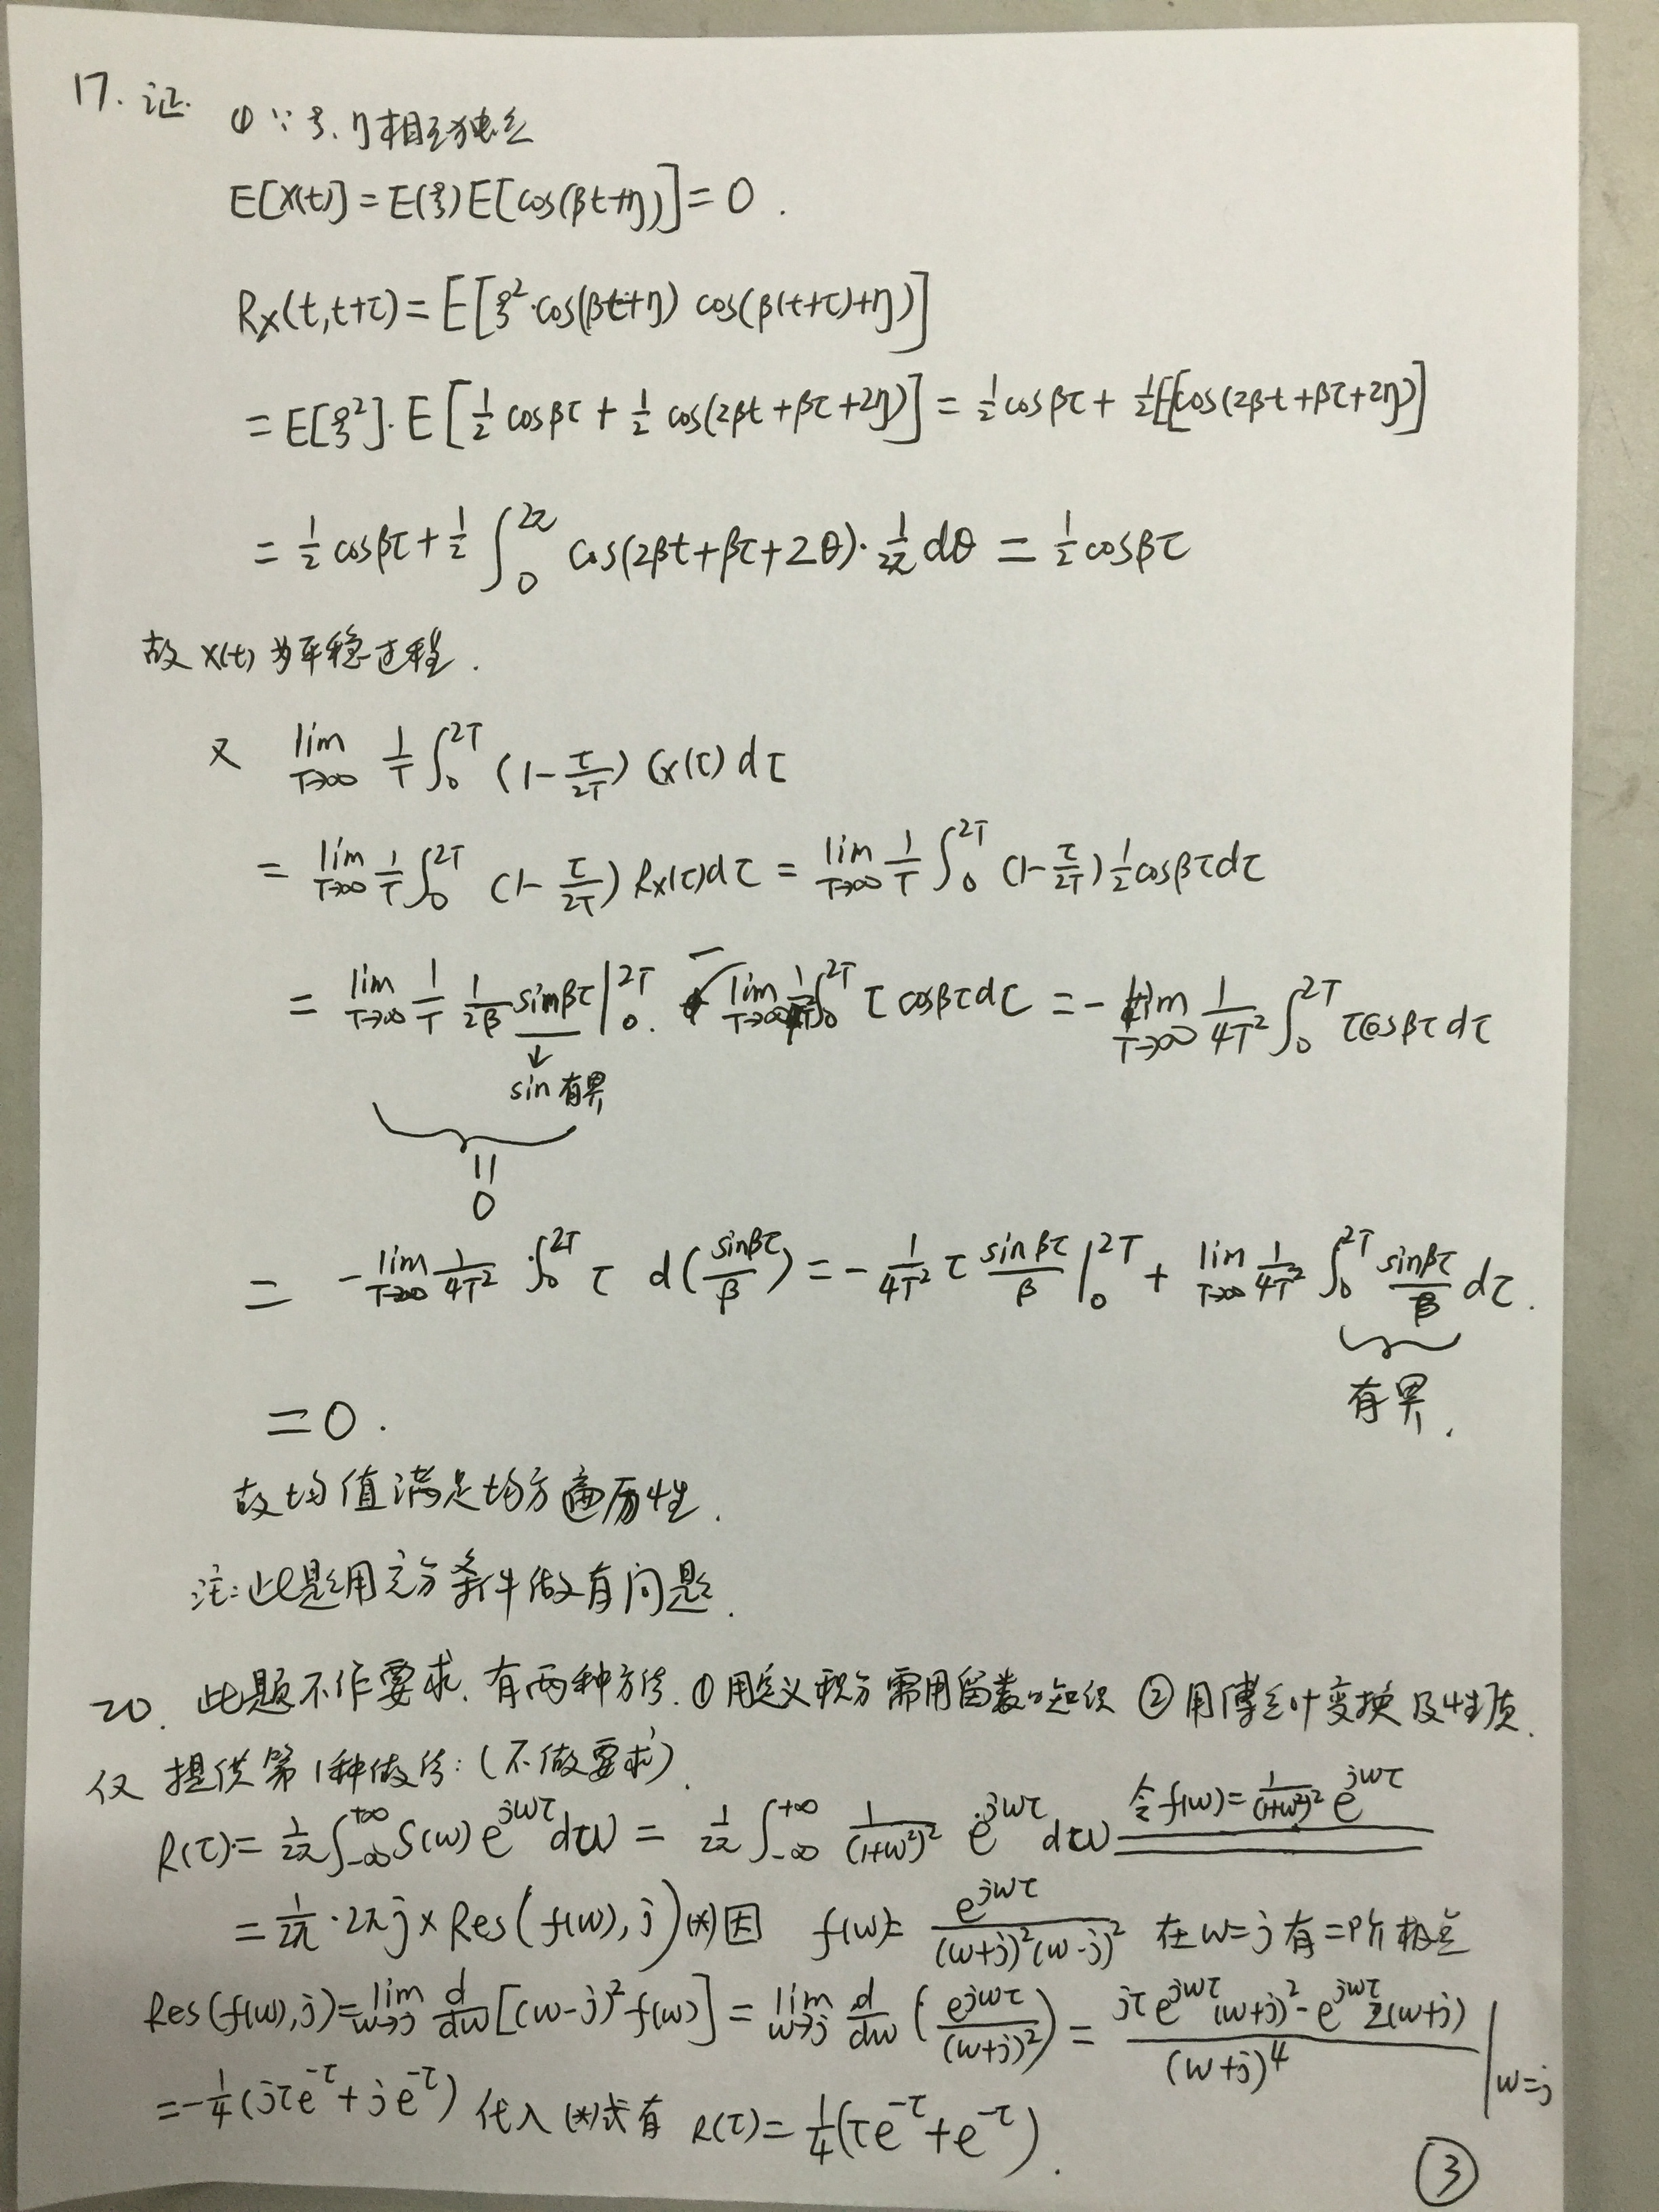 17. 证. ① ∵ ξ、η相互独立
E[X(t)] = E(ξ)E[cos(βt+η)] = 0 .
R_X(t,t+τ) = E[ξ²·cos(βt+η) cos(β(t+τ)+η)]
= E[ξ²]·E[½cosβτ + ½cos(2βt+βτ+2η)] = ½cosβτ + ½E[cos(2βt+βτ+2η)]
= ½cosβτ + ½∫₀^{2π} cos(2βt+βτ+2θ)·1/(2π) dθ = ½cosβτ
故 X(t) 为平稳过程 .
又 lim_{T→∞} 1/T ∫₀^{2T} (1-τ/2T) C_X(τ) dτ
= lim_{T→∞} 1/T ∫₀^{2T} (1-τ/2T) R_X(τ)dτ = lim_{T→∞} 1/T ∫₀^{2T} (1-τ/2T) ½cosβτdτ
= lim_{T→∞} 1/T 1/(2β) sinβτ |₀^{2T} - lim_{T→∞} ∫₀^{2T} τcosβτdτ = - lim_{T→∞} 1/(4T²) ∫₀^{2T} τcosβτdτ
↓
sin有界
=
0
= -lim_{T→∞} 1/(4T²) ∫₀^{2T} τ d(sinβτ/β) = - 1/(4T²) τ sinβτ/β |₀^{2T} + lim_{T→∞} 1/(4T²) ∫₀^{2T} sinβτ/β dτ.
有界.
= 0 .
故均值满足均方遍历性 .
注:此题用充分条件做有问题.
20. 此题不作要求. 有两种方法. ①用定义积分需用留数的知识 ②用傅立叶变换及性质.
仅提供第1种做法:(不做要求).
R(τ) = 1/(2π) ∫_{-∞}^{+∞} S(ω)e^{jωτ}dω = 1/(2π) ∫_{-∞}^{+∞} 1/(1+ω²)² e^{jωτ}dω 令f(ω)=1/(1+ω²)² e^{jωτ}
= 1/(2π)·2πj × Res(f(ω),j) (*) 因 f(ω)= e^{jωτ}/((ω+j)²(ω-j)²) 在ω=j有二阶极点
Res(f(ω),j) = lim_{ω→j} d/dω [(ω-j)²f(ω)] = lim_{ω→j} d/dω (e^{jωτ}/(ω+j)²) = (jτe^{jωτ}(ω+j)² - e^{jωτ}2(ω+j))/(ω+j)⁴ |_{ω=j}
= -¼(jτe^{-τ} + je^{-τ}) 代入(*)式有 R(τ) = ¼(τe^{-τ}+e^{-τ}).
③